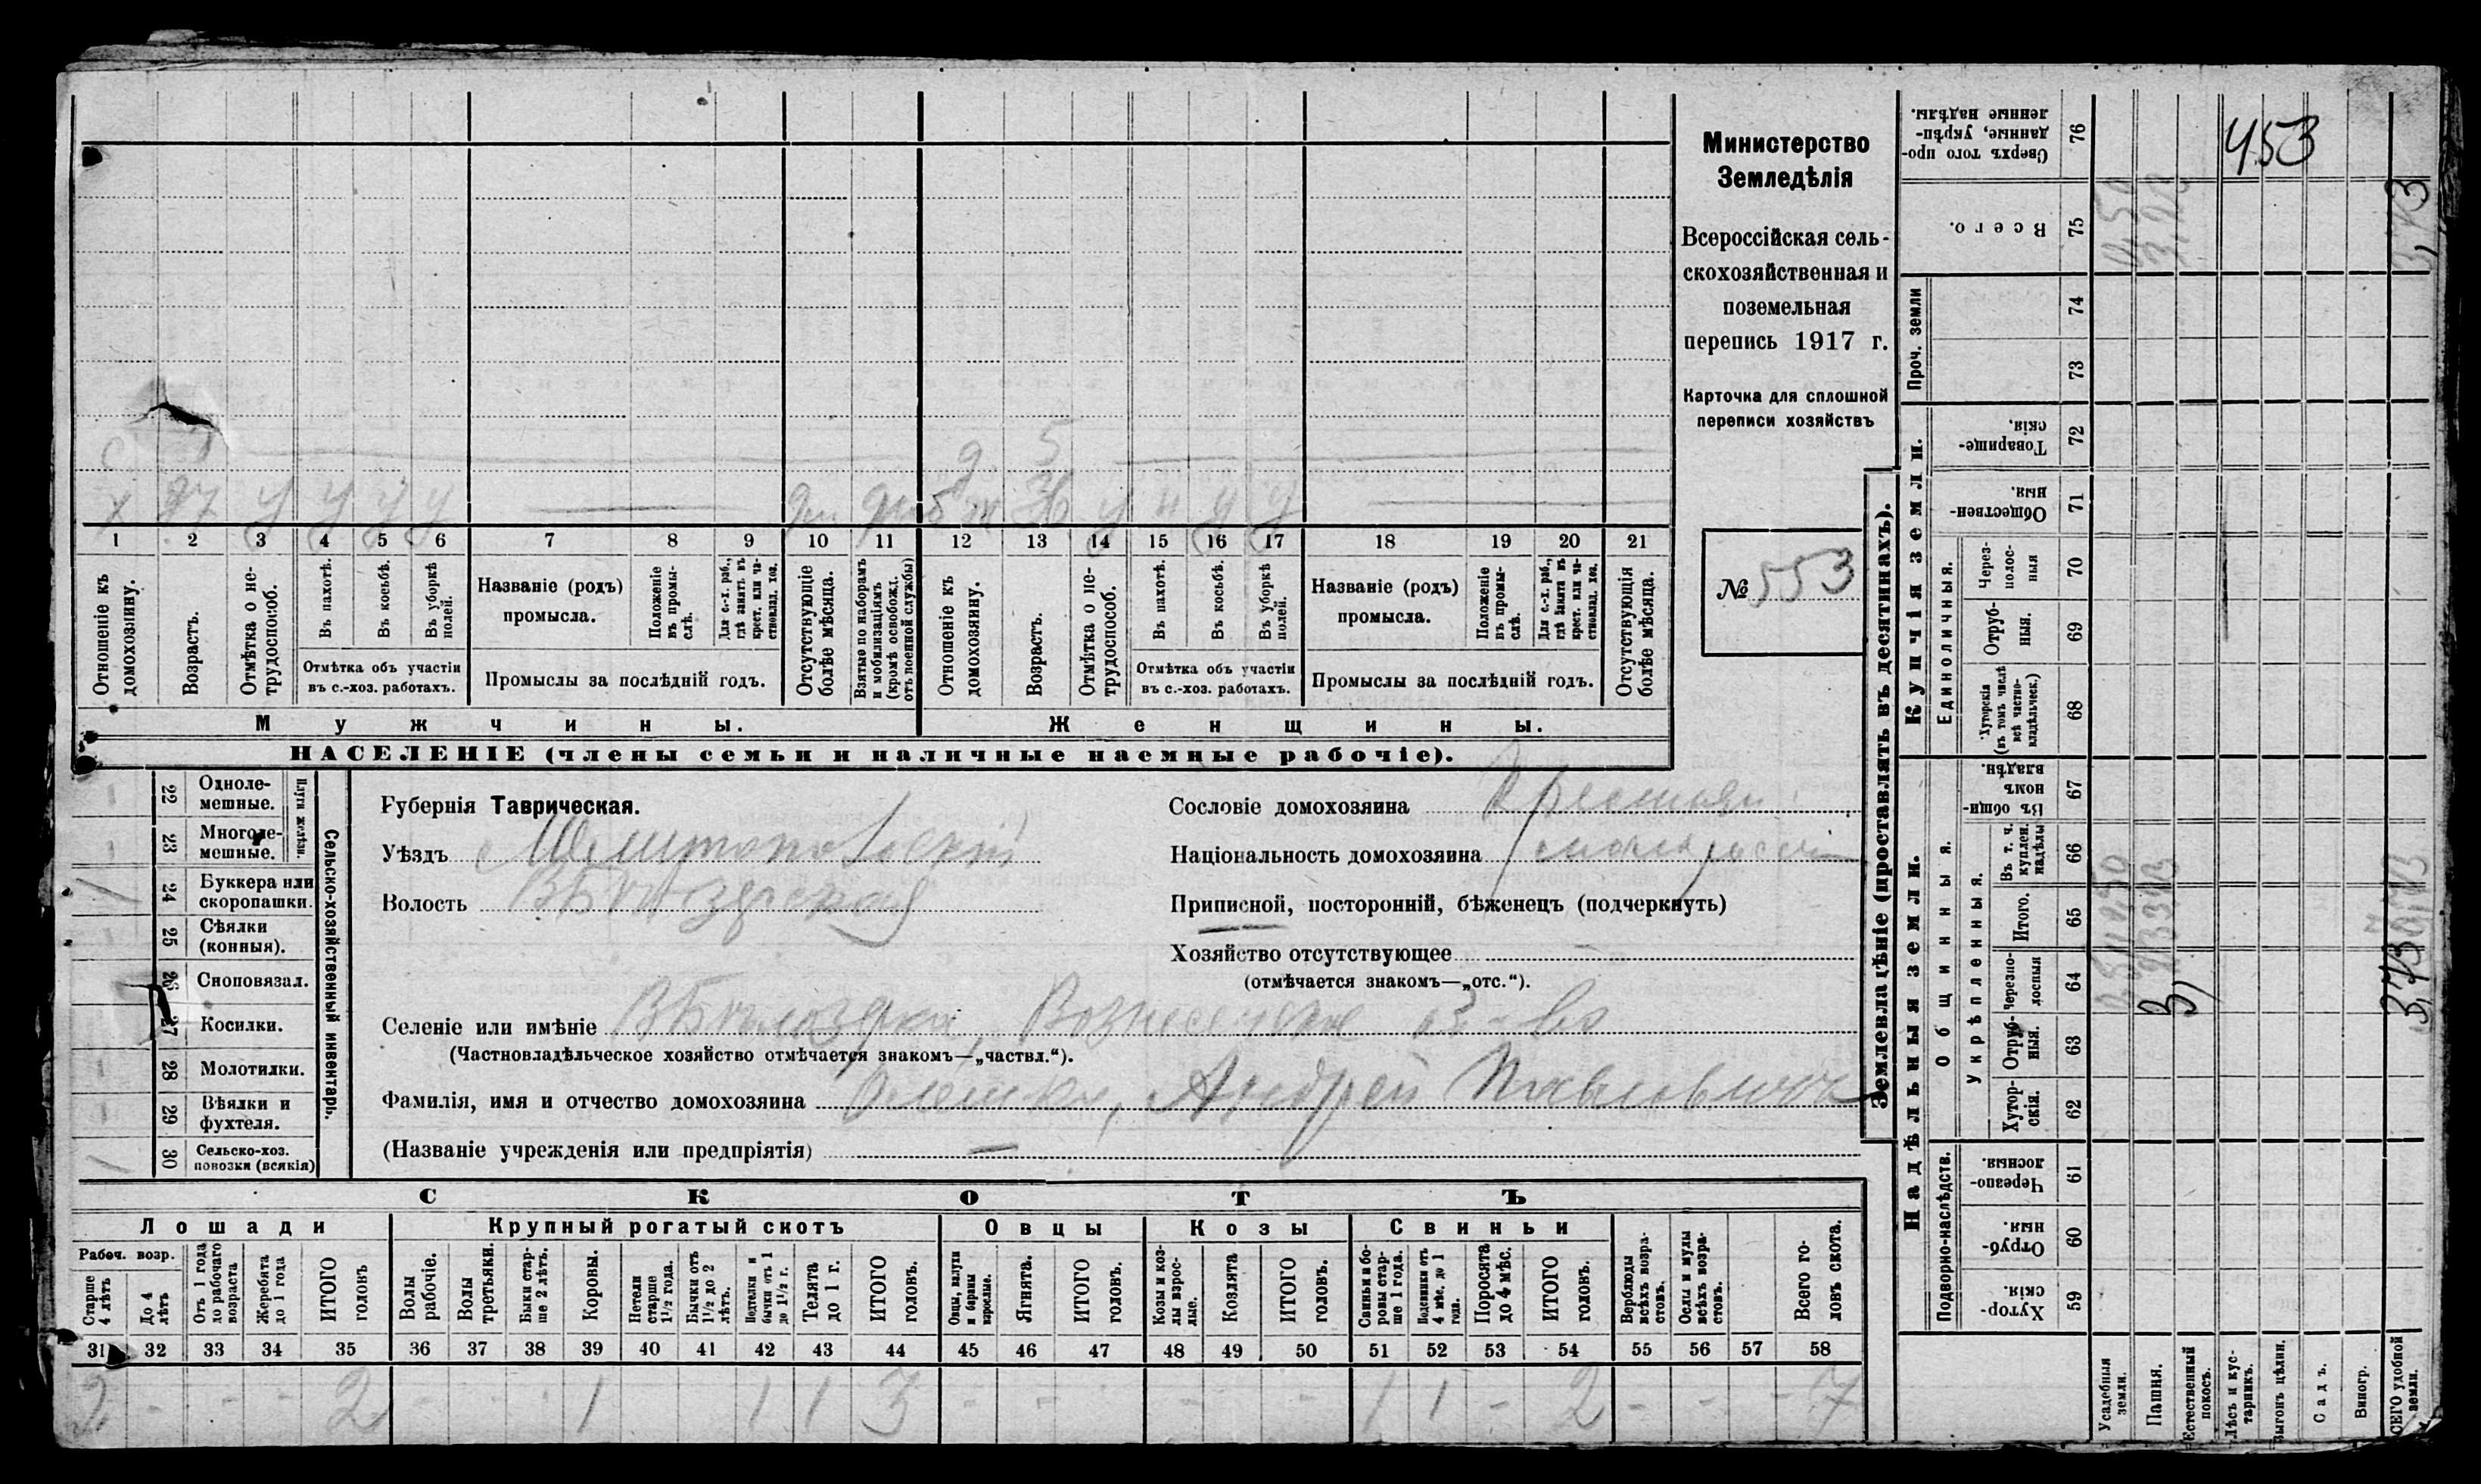 Министерство
Земледѣлія
Всероссійская сель-
скохозяйственная и
поземельная
перепись 1917 г.
Карточка для сплошной
переписи хозяйствъ
№ 553
с 7 д 5
х 37 у у у у дм ж у н у у
1 2 3 4 5 6 7 8 9 10 11 12 13 14 15 16 17 18 19 20 21
Отношеніе къ домохозяину.
Возрастъ.
Отмѣтка о не-трудоспособ.
Въ пахотѣ.
Въ косьбѣ.
Въ уборкѣ полей.
Отмѣтка объ участіи
въ с.-хоз. работахъ.
Названіе (родъ)
промысла.
Положеніе въ промы-слѣ.
Для с.-х. раб., гдѣ занятъ въ крест. или ча-стновлад. хоз.
Промыслы за послѣдній годъ.
Отсутствующіе болѣе мѣсяца.
Взятые по наборамъ и мобилизаціямъ (кромѣ освобожд. отъ военной службы)
Отношеніе къ домохозяину.
Возрастъ.
Отмѣтка о не-трудоспособ.
Въ пахотѣ.
Въ косьбѣ.
Въ уборкѣ полей.
Отмѣтка объ участіи
въ с.-хоз. работахъ.
Названіе (родъ)
промысла.
Положеніе въ промы-слѣ.
Для с.-х. раб., гдѣ занятъ въ крест. или ча-стновлад. хоз.
Промыслы за послѣдній годъ.
Отсутствующія болѣе мѣсяца.
Мужчины.
Женщины.
НАСЕЛЕНІЕ (члены семьи и наличные наемные рабочіе).
22 Одноле-мешные.
23 Многоле-мешные.
Плуги желѣзн.
24 Буккера или скоропашки.
25 Сѣялки (конныя).
26 Сноповязал.
27 Косилки.
28 Молотилки.
29 Вѣялки и фухтеля.
30 Сельско-хоз. повозки (всякія)
Сельско-хозяйственный инвентарь.
Губернія Таврическая.
Уѣздъ Мелитопольскій
Волость В Бѣлозерская
Селеніе или имѣніе В Бѣлозерка, Вознесенское о-во
(Частновладѣльческое хозяйство отмѣчается знакомъ—„частвл.“).
Фамилія, имя и отчество домохозяина Олешко, Андрей Павловичъ
(Названіе учрежденія или предпріятія) —
Сословіе домохозяина Крестьян.
Національность домохозяина малоросс
Приписной, посторонній, бѣженецъ (подчеркнуть)
Хозяйство отсутствующее
(отмѣчается знакомъ—„отс.“).
СКОТЪ
Лошади
Крупный рогатый скотъ
Овцы
Козы
Свиньи
Рабоч. возр.
Старше 4 лѣтъ
До 4 лѣтъ
Отъ 1 года до рабочаго возраста
Жеребята до 1 года
ИТОГО головъ
Волы рабочіе.
Волы третьяки.
Быки стар-ше 2 лѣтъ.
Коровы.
Нетели старше 1½ года.
Бычки отъ 1½ до 2 лѣтъ.
Подтелки и бычки отъ 1 до 1½ г.
Телята до 1 г.
ИТОГО головъ.
Овцы, валухи и бараны взрослые.
Ягнята.
ИТОГО головъ.
Козы и коз-лы взрос-лые.
Козлята
ИТОГО головъ.
Свиньи и бо-ровы стар-ше 1 года.
Подсвинки отъ 4 мѣс. до 1 года.
Поросята до 4 мѣс.
ИТОГО головъ.
Верблюды всѣхъ возра-стовъ.
Ослы и мулы всѣхъ возра-стовъ.
Всего го-ловъ скота.
31 32 33 34 35 36 37 38 39 40 41 42 43 44 45 46 47 48 49 50 51 52 53 54 55 56 57 58
2 - - - 2 - - - 1 1 1 3 - - - - - - 1 1 - 2 - - - 7
Землевладѣніе (проставлять въ десятинахъ).
Надѣльныя земли.
Купчія земли.
Подворно-наслѣдств.
Общинныя.
Укрѣпленныя.
Единоличныя.
Проч. земли
59 Хутор-скія.
60 Отруб-ныя.
61 Черезпо-лосныя.
62 Хутор-скія.
63 Отруб-ныя.
64 Черезпо-лосныя
65 Итого.
66 Въ т. ч. куплен. надѣлы
67 Въ общи-номъ владѣн.
68 Хуторскія (въ томъ числѣ всѣ частно-владѣльческ.)
69 Отруб-ныя.
70 Через-полос-ныя
71 Обществен-ныя.
72 Товарище-скія.
73
74
75 Всего.
76 Сверхъ того про-данные, укрѣп-ленные надѣлы.
Усадебныя земли.
Пашня.
Естественный покосъ.
Лѣсъ и кус-тарникъ.
Выгонъ цѣлин.
Садъ.
Виногр.
ВСЕГО удобной земли.
453
3,73